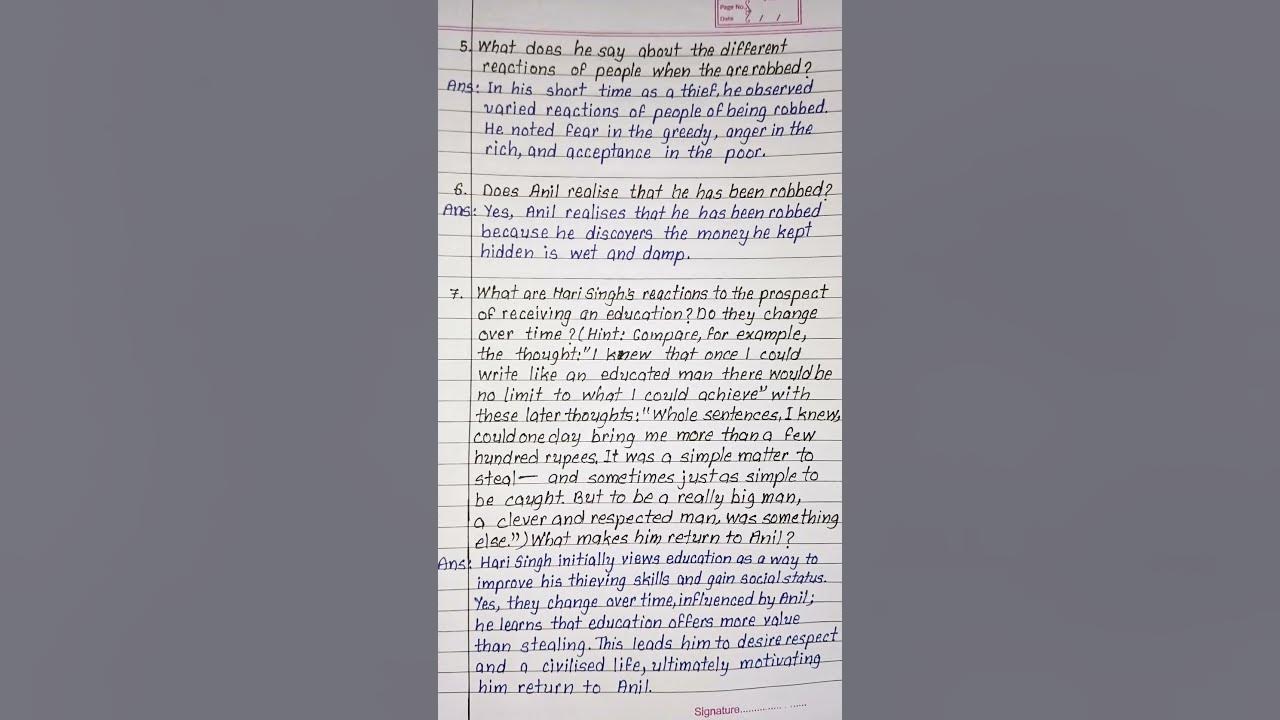 Page No.
Date / /
5. What does he say about the different
reactions of people when the are robbed?
Ans: In his short time as a thief, he observed
varied reactions of people of being robbed.
He noted fear in the greedy, anger in the
rich, and acceptance in the poor.
6. Does Anil realise that he has been robbed?
Ans: Yes, Anil realises that he has been robbed
because he discovers the money he kept
hidden is wet and damp.
7. What are Hari Singh's reactions to the prospect
of receiving an education? Do they change
over time? (Hint: Compare, for example,
the thought: "I knew that once I could
write like an educated man there would be
no limit to what I could achieve" with
these later thoughts: "Whole sentences, I knew,
could one day bring me more than a few
hundred rupees. It was a simple matter to
steal — and sometimes just as simple to
be caught. But to be a really big man,
a clever and respected man, was something
else.") What makes him return to Anil?
Ans: Hari Singh initially views education as a way to
improve his thieving skills and gain social status.
Yes, they change over time, influenced by Anil;
he learns that education offers more value
than stealing. This leads him to desire respect
and a civilised life, ultimately motivating
him return to Anil.
Signature.....................